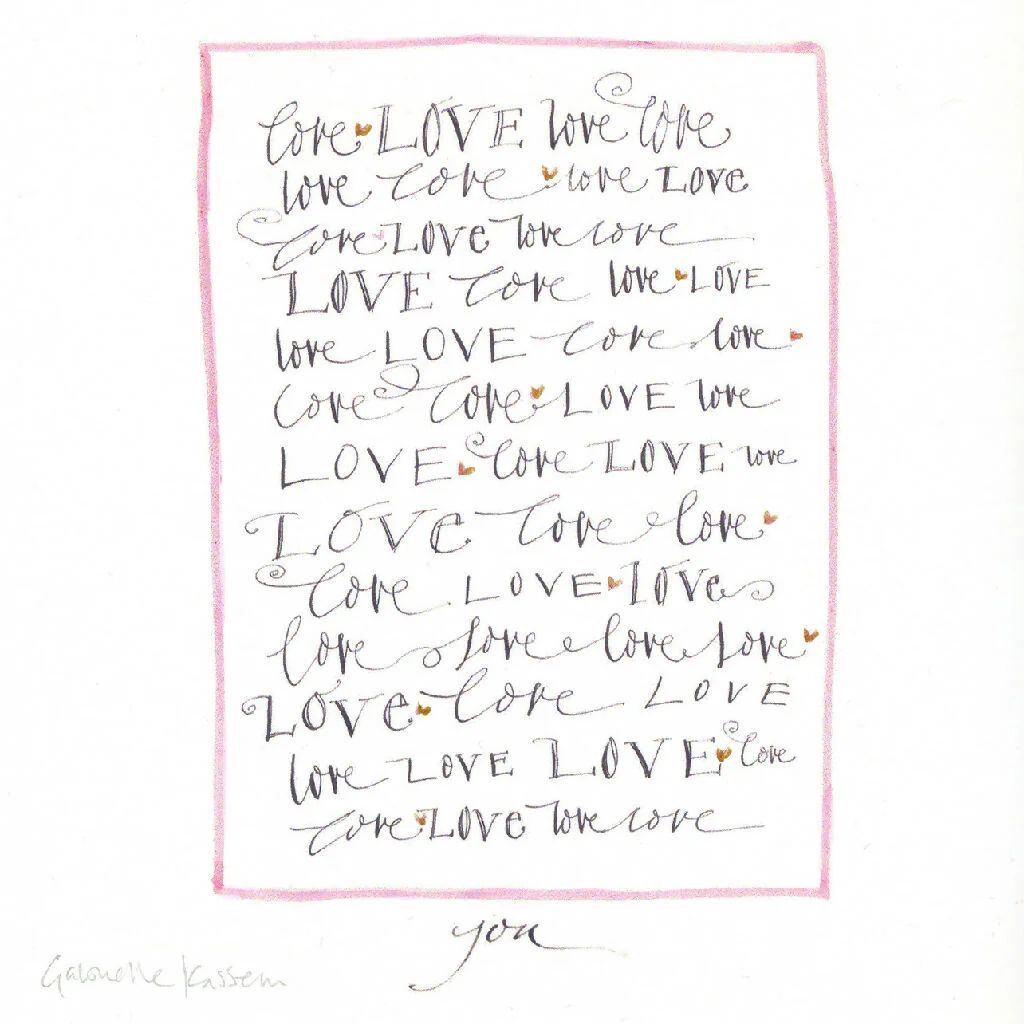 love LOVE love love
love love love LOVE
love LOVE love love
LOVE love love LOVE
love LOVE love love
love love LOVE love
LOVE love LOVE love
LOVE love love
love LOVE LOVE
love love love love
LOVE love LOVE
love LOVE LOVE love
love LOVE love love
you
Gabrielle Kassem